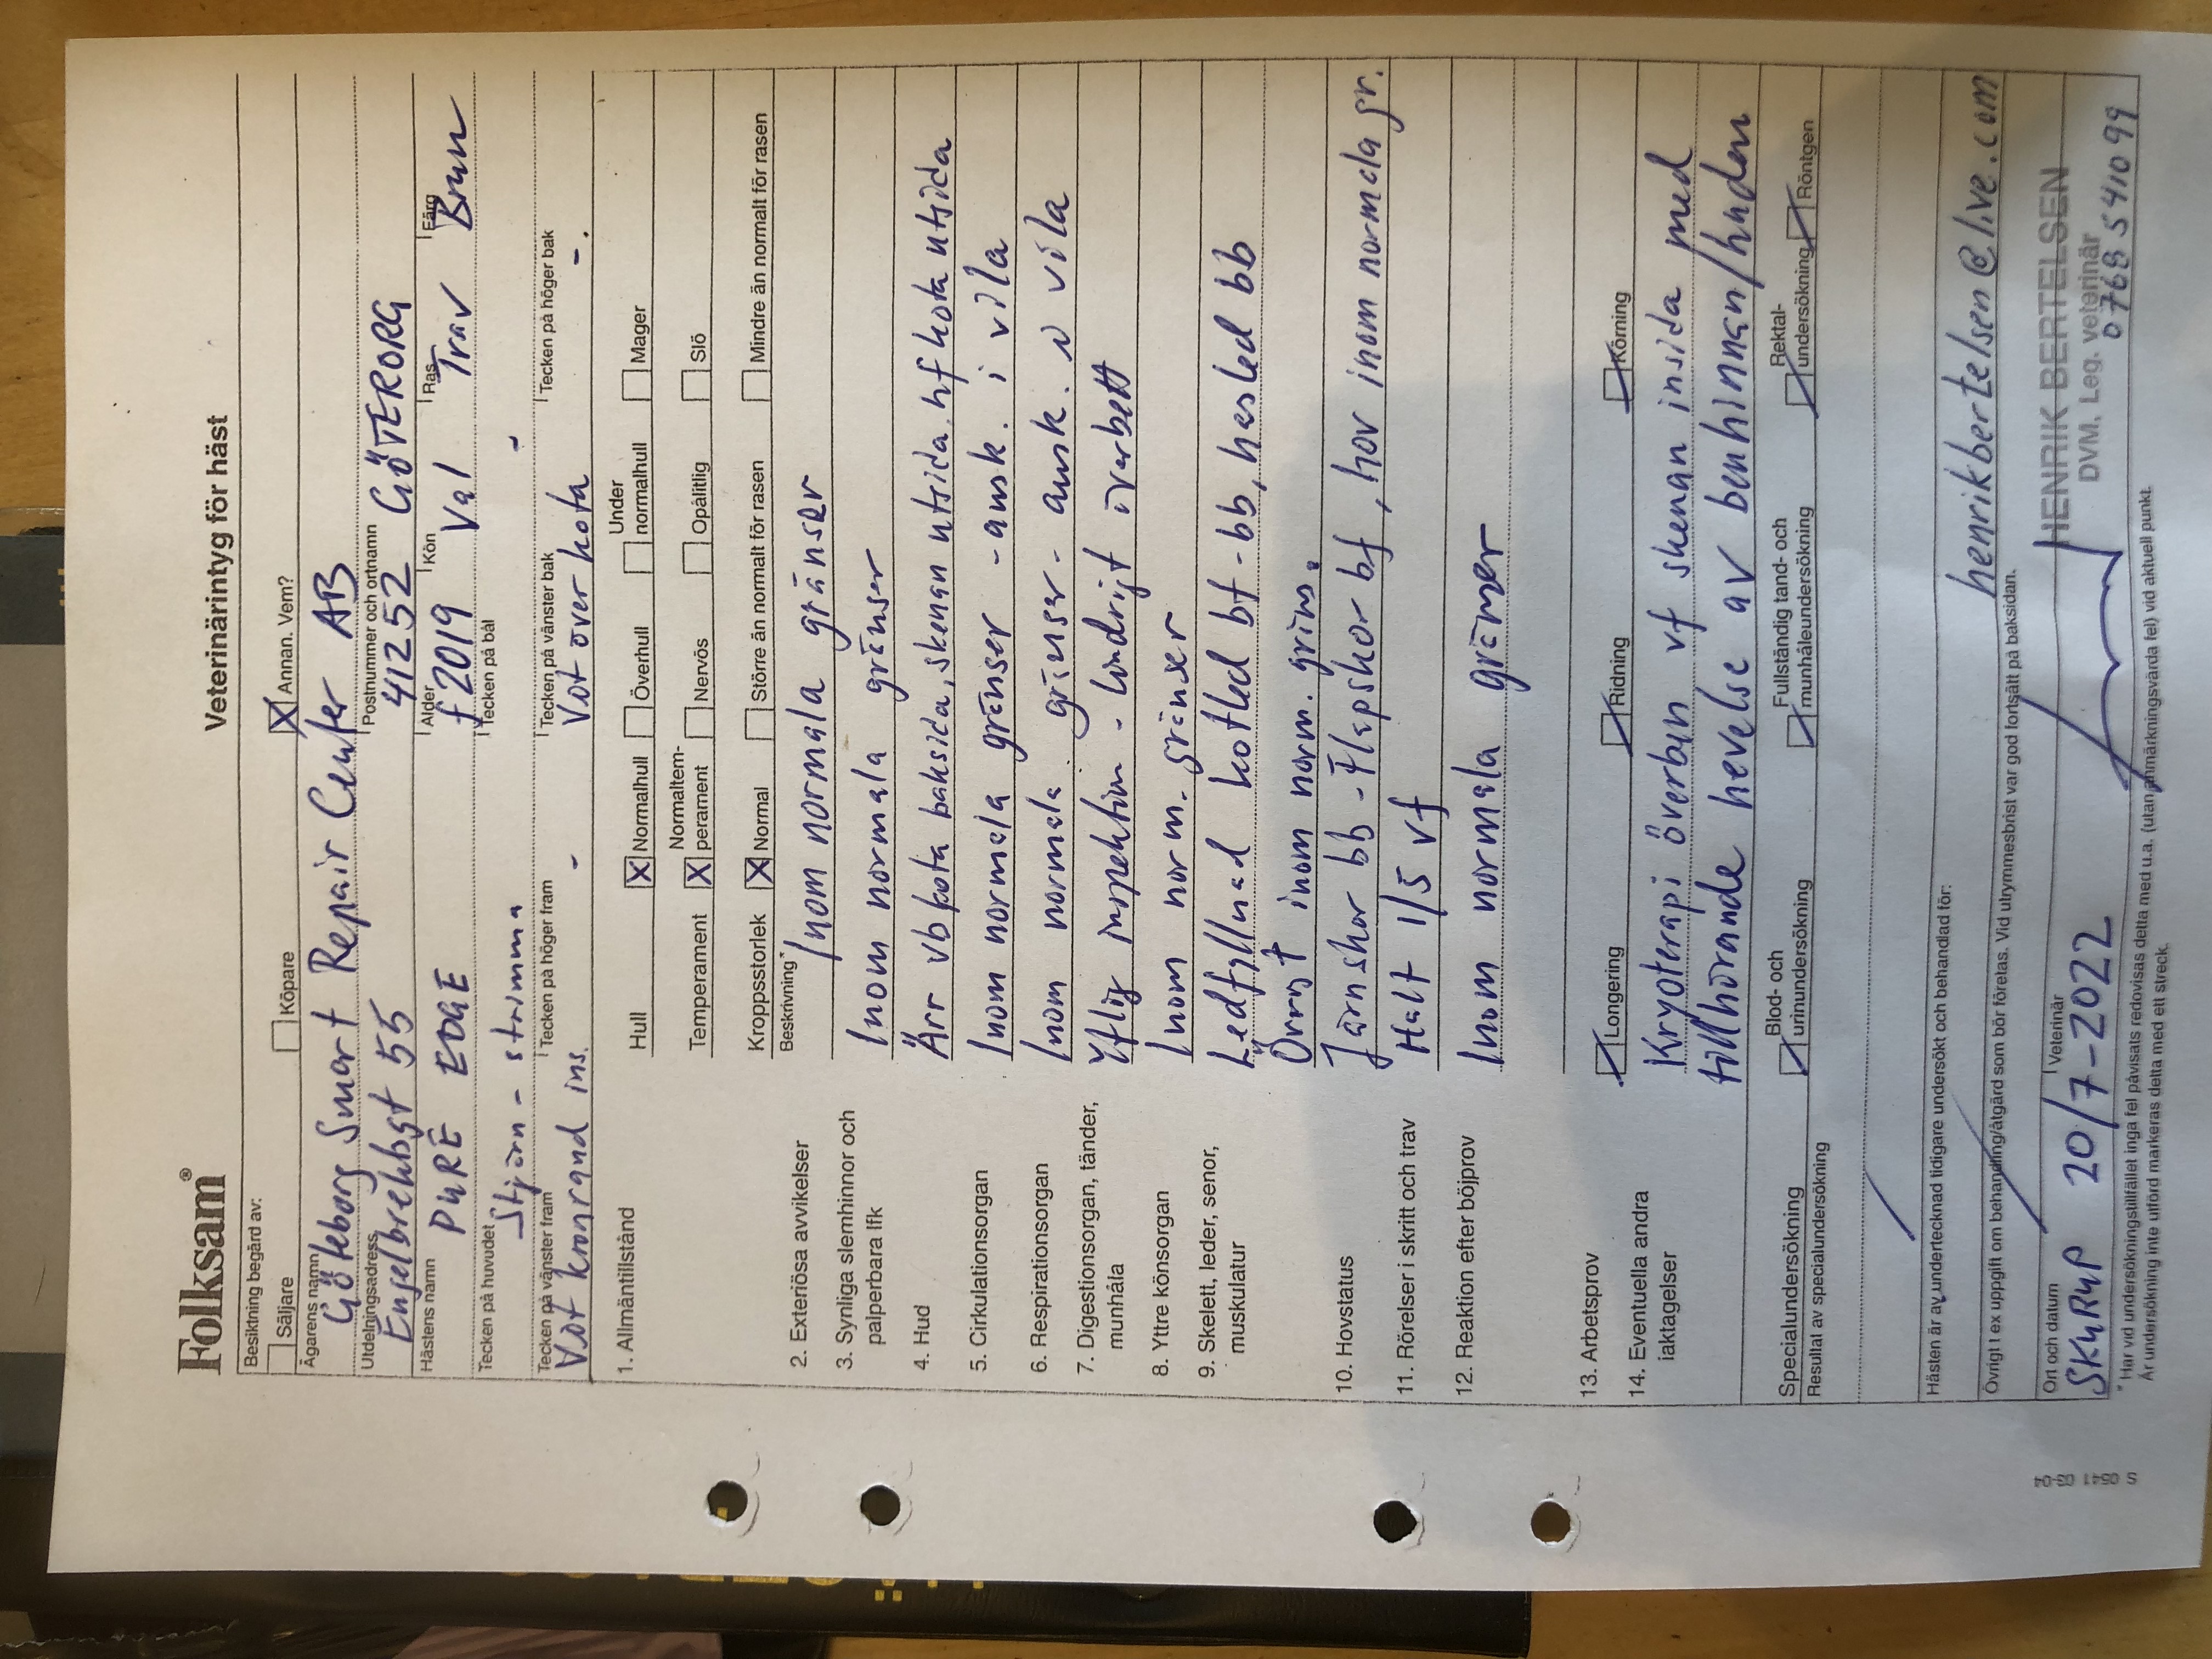 Folksam®
Veterinärintyg för häst
Besiktning begärd av:
Säljare Köpare X Annan. Vem?
Ägarens namn
Göteborg Smart Repair Center AB
Utdelningsadress Postnummer och ortnamn
Engelbrektsgt 55 41252 GÖTERORG
Hästens namn Ålder Kön Ras Färg
PURE EDGE f 2019 Val Trav Brun
Tecken på huvudet Tecken på bål
Stjärn - strimma -
Tecken på vänster fram Tecken på höger fram Tecken på vänster bak Tecken på höger bak
Vot kronrand ins. - Vot over kota -.
1. Allmäntillstånd Hull X Normalhull Överhull Under normalhull Mager
Temperament X Normaltem-perament Nervös Opålitlig Slö
Kroppsstorlek X Normal Större än normalt för rasen Mindre än normalt för rasen
Beskrivning*
2. Exteriösa avvikelser Inom normala gränser
3. Synliga slemhinnor och
palperbara lfk Inom normala gränser
4. Hud Ärr vb kota baksida, skenan utsida, hf kota utsida
5. Cirkulationsorgan Inom normala gränser - ausk. i vila
6. Respirationsorgan Inom normala gränser - ausk. i vila
7. Digestionsorgan, tänder,
munhåla Ytlig inspektion - lindrigt överbett
8. Yttre könsorgan Inom norm. gränser
9. Skelett, leder, senor,
muskulatur Ledfyllnad kotled bf - bb, hasled bb
Övrigt inom norm. gräns.
10. Hovstatus Järnskor bb - Flapskor bf, hov inom normala gr.
11. Rörelser i skritt och trav Halt 1/5 vf
12. Reaktion efter böjprov Inom normala gränser
13. Arbetsprov Longering Ridning Körning
14. Eventuella andra
iaktagelser Kryoterapi överban vf skenan insida med
tillhörande hevelse av benhinnan/huden
Specialundersökning Blod- och urinundersökning Fullständig tand- och munhåleundersökning Rektal-undersökning Röntgen
Resultat av specialundersökning
Hästen är av undertecknad tidigare undersökt och behandlad för:
henrikbertelsen@live.com
Övrigt t ex uppgift om behandling/åtgärd som bör förelas. Vid utrymmesbrist var god fortsätt på baksidan.
Ort och datum Veterinär
SKURUP 20/7-2022
HENRIK BERTELSEN
DVM, Leg. veterinär
0768541099
* Har vid undersökningstillfället inga fel påvisats redovisas detta med u.a. (utan anmärkningsvärda fel) vid aktuell punkt.
Är undersökning inte utförd markeras detta med ett streck.
S 0541